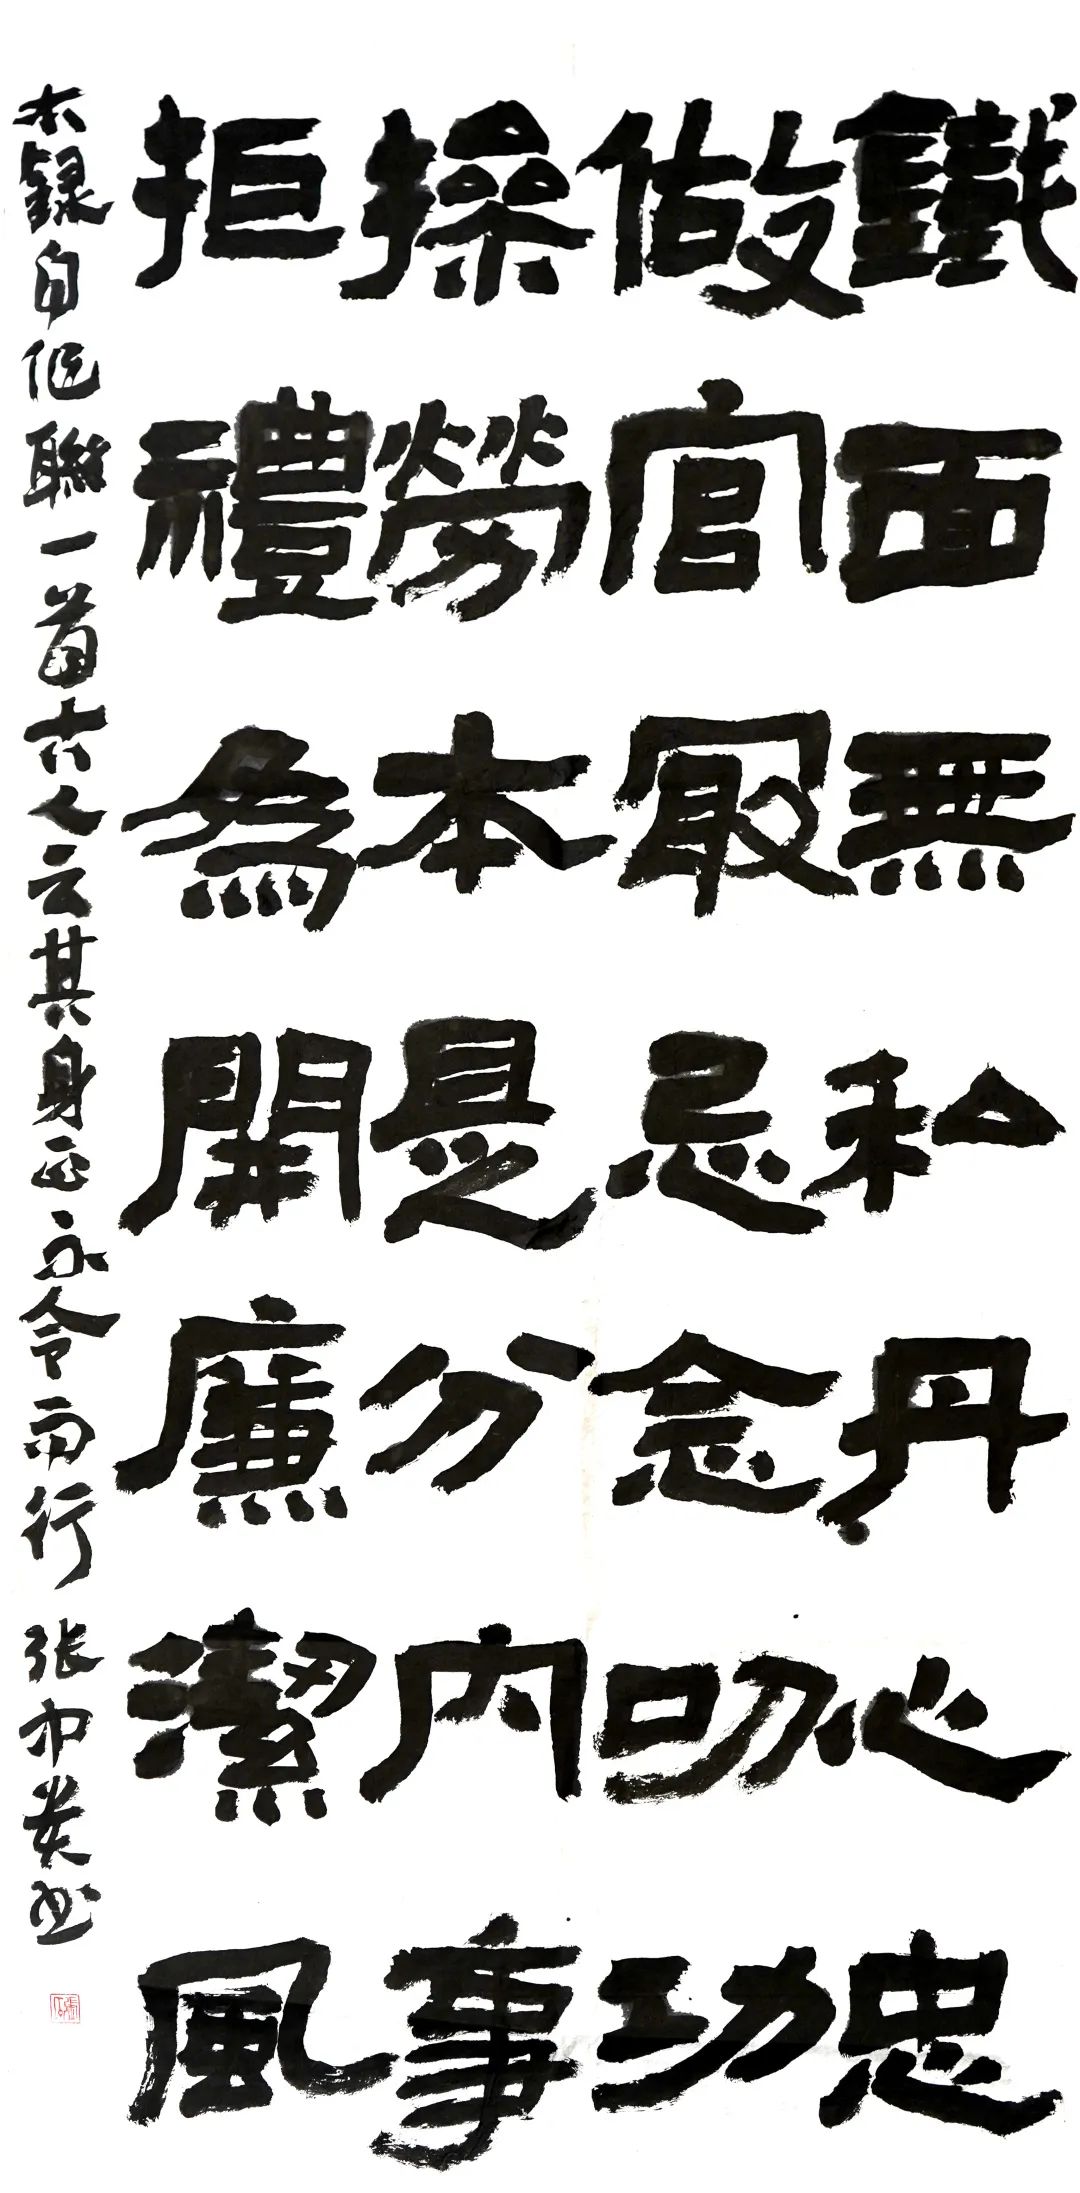 鐵面無私丹心忠
做官最忌念叨功
操勞本是分内事
拒禮為開廉潔風
錄自作聯一首古人云其身正不令而行 張书